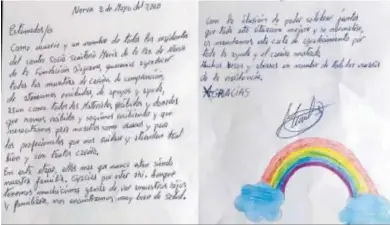 Nerva 2 de Mayo del 2020
Estimados/as
Como usuario y en nombre de todos los residentes
del centro Socio Sanitario María de la Paz de Nerva
de la Fundación queremos agradecer
todas las muestras de cariño, de comprensión,
de atenciones recibidas, de apoyos y ayuda,
así como todos los materiales y donados
que hemos recibido y seguimos recibiendo y que
necesitamos para nosotros como usuarios y para
los profesionales que nos cuidan y atienden tan
bien y con tanto cariño.
En esta etapa, ellos más que nunca están siendo
nuestra familia. Gracias por estar ahí. Aunque
tenemos muchísimas ganas de ver a nuestros hijos
y familiares, nos encontramos muy bien de salud.
Con la ilusión de poder celebrar juntos
que todo esto mejore y se normalice,
os mandamos esta carta de agradecimiento por
toda la ayuda y el cariño recibido.
Muchos besos y abrazos en nombre de todos los usuarios
de la residencia.
*GRACIAS